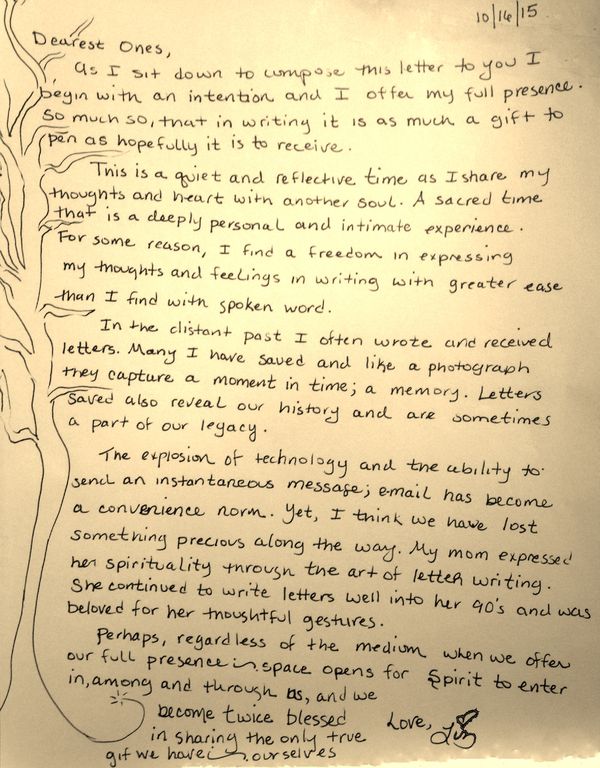 10/16/15
Dearest Ones,
As I sit down to compose this letter to you I
begin with an intention and I offer my full presence.
So much so, that in writing it is as much a gift to
pen as hopefully it is to receive.
This is a quiet and reflective time as I share my
thoughts and heart with another soul. A sacred time
that is a deeply personal and intimate experience.
For some reason, I find a freedom in expressing
my thoughts and feelings in writing with greater ease
than I find with spoken word.
In the distant past I often wrote and received
letters. Many I have saved and like a photograph
they capture a moment in time; a memory. Letters
saved also reveal our history and are sometimes
a part of our legacy.
The explosion of technology and the ability to
send an instantaneous message; email has become
a convenience norm. Yet, I think we have lost
something precious along the way. My mom expressed
her spirituality through the art of letter writing.
She continued to write letters well into her 90's and was
beloved for her thoughtful gestures.
Perhaps, regardless of the medium when we offer
our full presence space opens for Spirit to enter
in, among and through us, and we
become twice blessed
in sharing the only true
gift we have ourselves
Love,
Liz